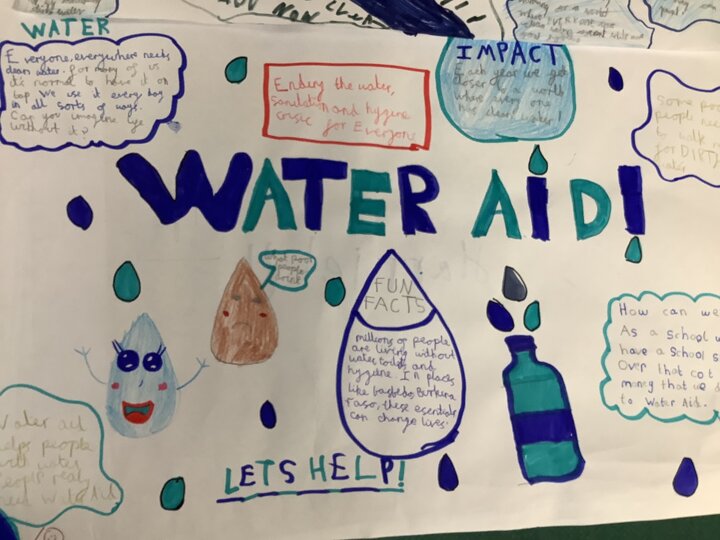 WATER
Everyone, everywhere needs
clean water. For many of us
it's normal to have it on
tap We use it every day
in all sorts of ways.
Can you imagine life
without it?
Ending the water,
sanitation and hygiene
crisic for Everyone
IMPACT
Each year we get
closer to a world
where every one
has clean water!
Some poo
people nee
to walk m
for DIRTY
water
WATER AID!
what poor
people
drink
FUN
FACTS
millions of people
are living without
water, toilets and
hygiene. In places
like Burkina
Faso, these essentials
can change lives.
How can we
As a school w
have a school s
Over that cot
money that we d
to Water Aid.
Water aid
helps people
with water
people really
need Water Aid
LETS HELP!